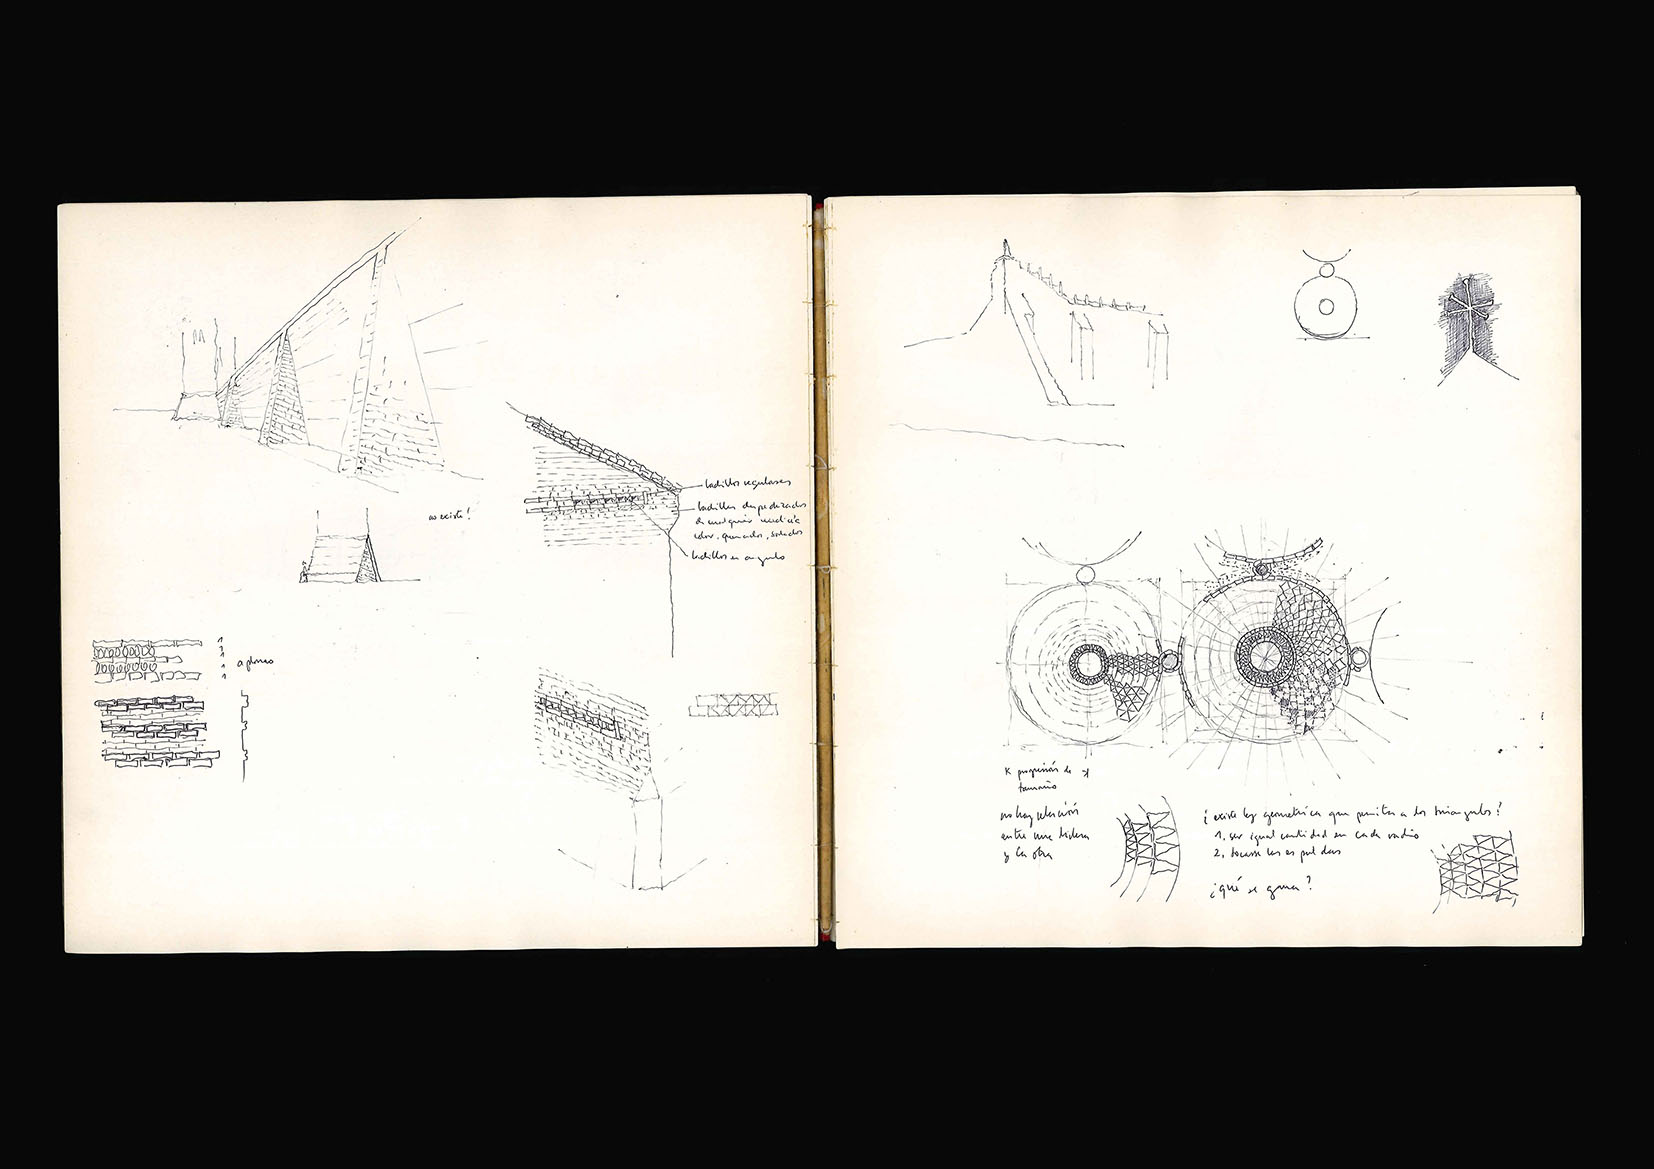 no existe!
ladillos regulares
ladillos despedazados
de cualquier medida
color, quemados, soldados
ladillos en angulo
1
3
1
1
1
a plomo
progresión de
tamaño
no hay relación
entre una hilera
y la otra
¿existe ley geometrica que permita a los triangulos?
1. ser igual cantidad en cada radio
2. tocarse las espaldas
¿qué se gana?